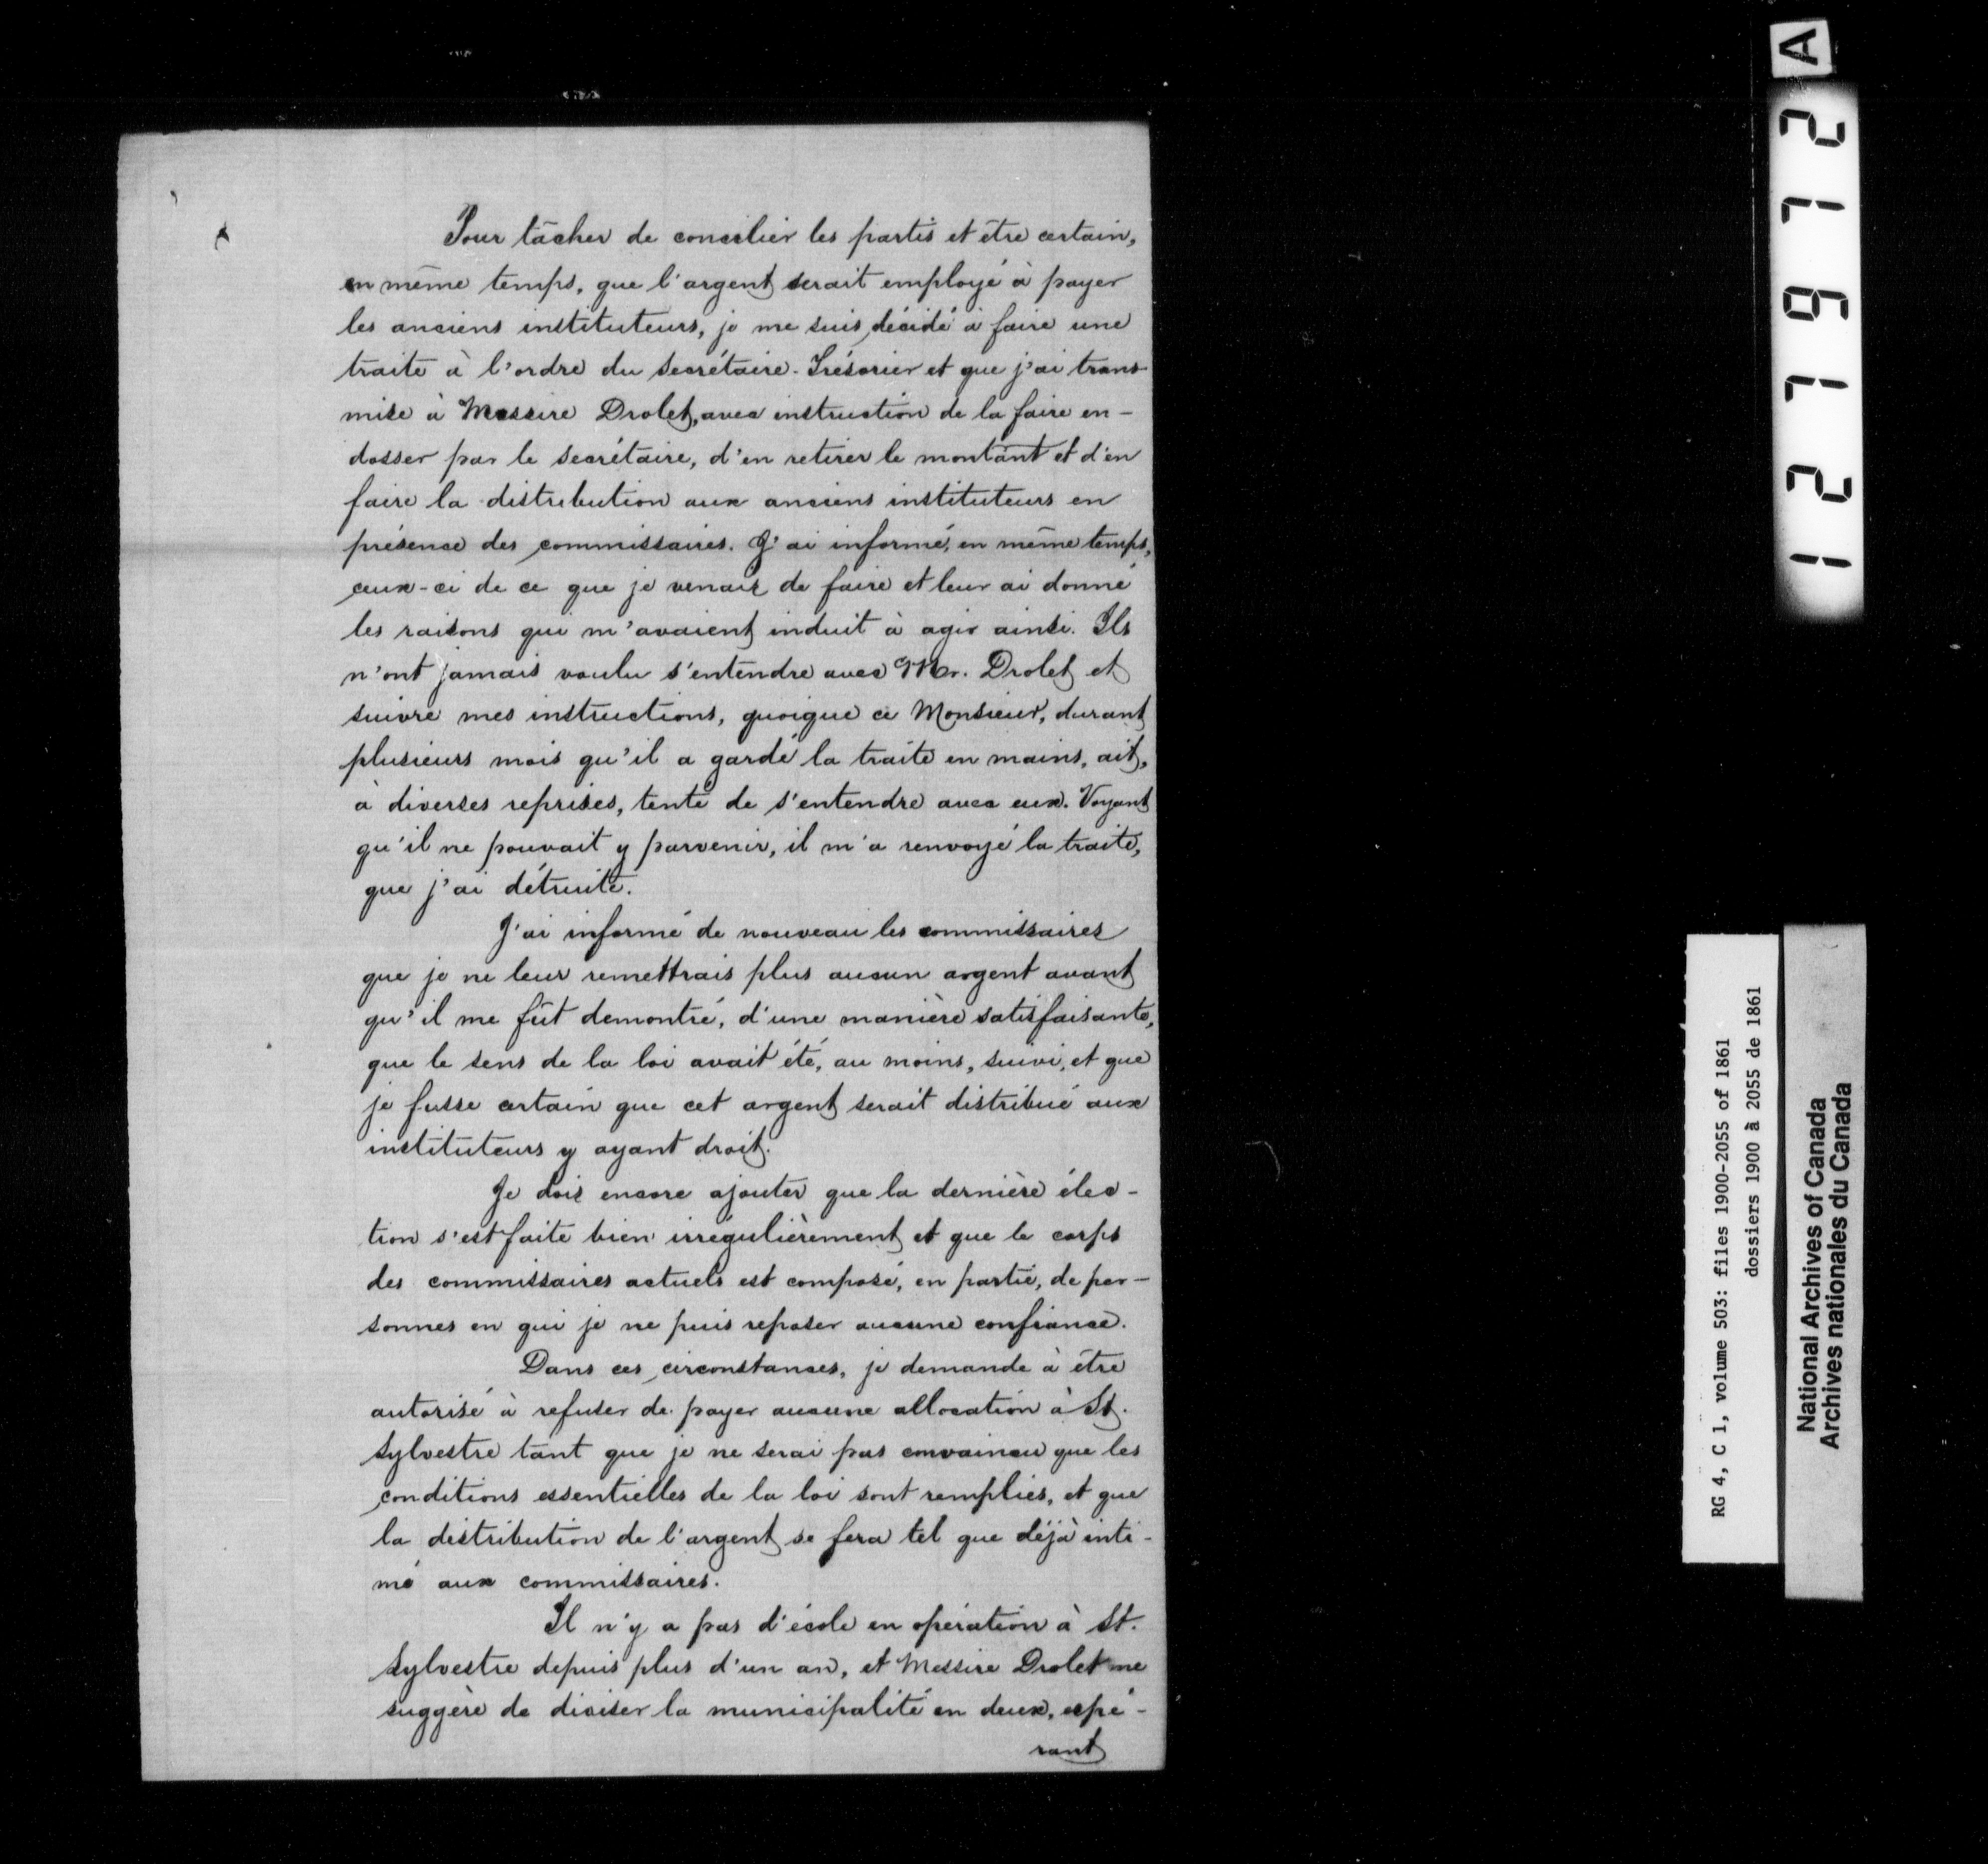 Pour tâcher de concilier les partis et être certain,
en même temps, que l'argent serait employé à payer
les anciens instituteurs, je me suis décidé à faire une
traite à l'ordre du secrétaire-Trésorier et que j'ai trans-
mise à Messire Drolet, avec instruction de la faire en-
dosser par le secrétaire, d'en retirer le montant et d'en
faire la distribution aux anciens instituteurs en
présence des commissaires. J'ai informé, en même temps,
ceux-ci de ce que je venais de faire et leur ai donné
les raisons qui m'avaient induit à agir ainsi. Ils
n'ont jamais voulu s'entendre avec Mr. Drolet et
suivre mes instructions, quoique ce Monsieur, durant
plusieurs mois qu'il a gardé la traite en mains, ait,
à diverses reprises, tenté de s'entendre avec eux. Voyant
qu'il ne pouvait y parvenir, il m'a renvoyé la traite,
que j'ai détruite.
J'ai informé de nouveau les commissaires
que je ne leur remettrais plus aucun argent avant
qu'il me fût demontré, d'une manière satisfaisante,
que le sens de la loi avait été, au moins, suivi, et que
je fusse certain que cet argent serait distribué aux
instituteurs y ayant droit.
Je dois encore ajouter que la dernière élec-
tion s'est faite bien irrégulièrement et que le corps
des commissaires actuels est composé, en partie, de per-
sonnes en qui je ne puis reposer aucune confiance.
Dans ces circonstances, je demande à être
autorisé à refuser de payer aucune allocation à St.
Sylvestre tant que je ne serai pas convaincu que les
conditions essentielles de la loi sont remplies, et que
la distribution de l'argent se fera tel que déjà inti-
mé aux commissaires.
Il n'y a pas d'école en opération à St.
Sylvestre depuis plus d'un an, et Messire Drolet me
suggère de diviser la municipalité en deux, espé-
rant
121912 A
RG 4, C 1, volume 503: files 1900-2055 of 1861
dossiers 1900 à 2055 de 1861
National Archives of Canada
Archives nationales du Canada